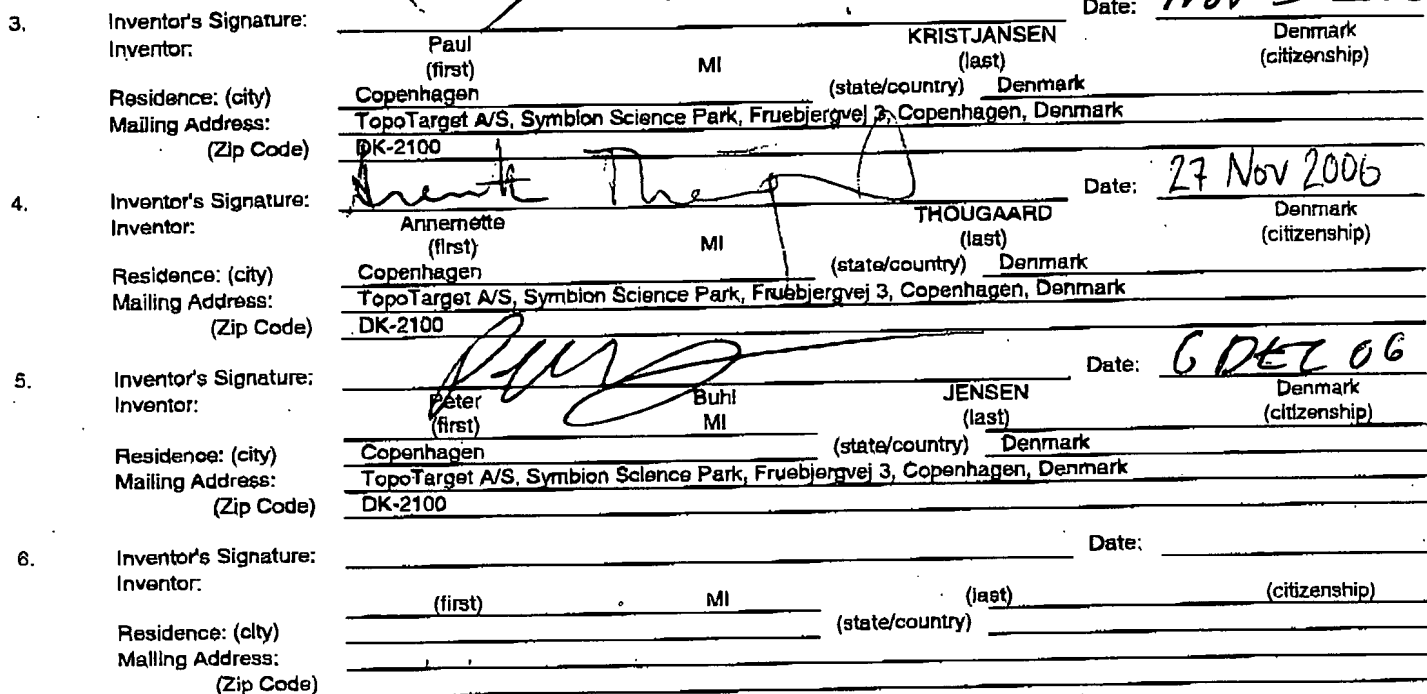 Date:
3. Inventor's Signature:
Inventor: Paul KRISTJANSEN Denmark
(first) MI (last) (citizenship)
Residence: (city) Copenhagen (state/country) Denmark
Mailing Address: TopoTarget A/S, Symbion Science Park, Fruebjergvej 3, Copenhagen, Denmark
(Zip Code) DK-2100
4. Inventor's Signature: Date: 27 Nov 2006
Inventor: Annemette THOUGAARD Denmark
(first) MI (last) (citizenship)
Residence: (city) Copenhagen (state/country) Denmark
Mailing Address: TopoTarget A/S, Symbion Science Park, Fruebjergvej 3, Copenhagen, Denmark
(Zip Code) DK-2100
5. Inventor's Signature: Date: 6 DEC 06
Inventor: Peter Buhl JENSEN Denmark
(first) MI (last) (citizenship)
Residence: (city) Copenhagen (state/country) Denmark
Mailing Address: TopoTarget A/S, Symbion Science Park, Fruebjergvej 3, Copenhagen, Denmark
(Zip Code) DK-2100
6. Inventor's Signature: Date:
Inventor:
(first) MI (last) (citizenship)
Residence: (city) (state/country)
Mailing Address:
(Zip Code)